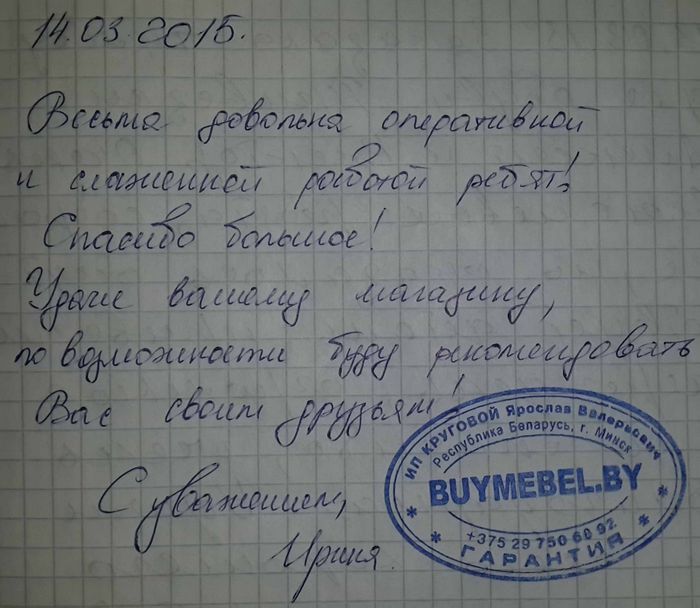 14.03.2015.
Весьма довольна оперативной
и слаженной работой ребят!
Спасибо большое!
Удачи вашему магазину,
по возможности буду рекомендовать
Вас своим друзьям!
С уважением,
Ирина.
ИП КРУГОВОЙ Ярослав Валерьевич
Республика Беларусь, г. Минск
BUYMEBEL.BY
+375 29 750 60 92
* ГАРАНТИЯ *